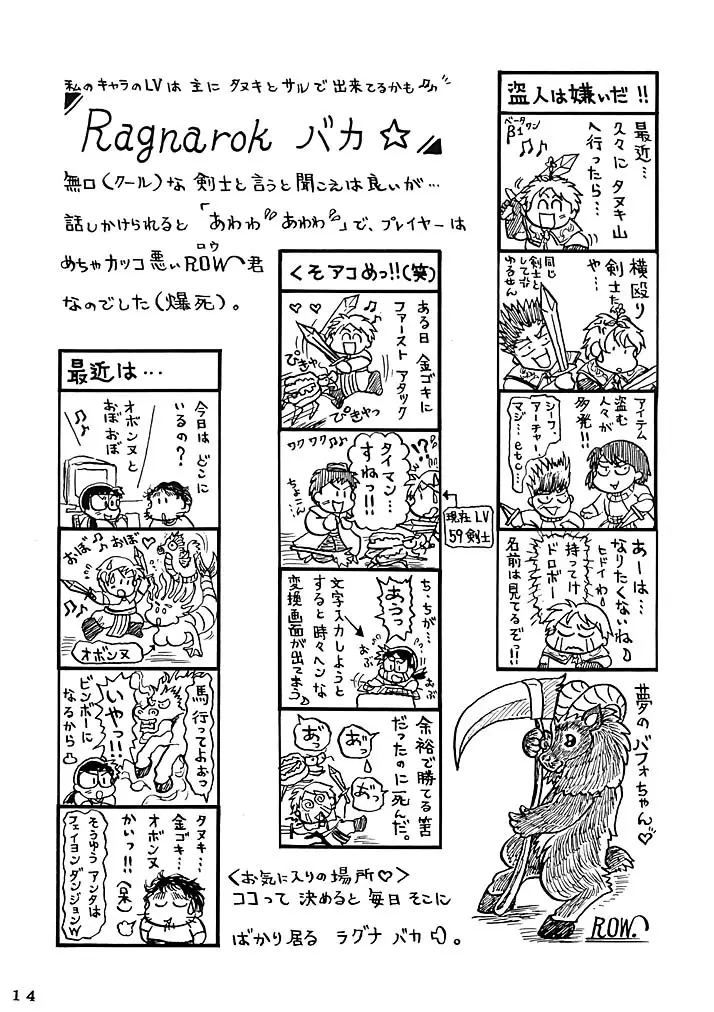 私のキャラのLVは主にタヌキとサルで出来てるかも♪♪"
Ragnarok バカ☆
無口(クール)な剣士と言うと聞こえは良いが…
話しかけられると「あわわあわわ」で、プレイヤーは
めちゃカッコ悪いROW君
ロウ
なのでした(爆死)。
盗人は嫌いだ!!
ベータワン
β1
最近…
久々にタヌキ山
へ行ったら…
横殴り
剣士た
や…
同じ
剣士と
して
ゆるせん
アイテム
盗む
人々が
多発!!
シーフ、
アーチャー、
マジ…etc…
あーは…
なりたくないね♪
ヒドイわ
持ってけ
ドロボー
名前は見てるぞっ!!
夢のバフォちゃん♡
ROW.
くそアコめっ!!(笑)
ある日金ゴキに
ファーストアタック
ぴきゃっ
ぴきゃっ
ワクワク♪♪
タイマン…
すねっ!!
!?
ちょこん
現在LV
59剣士
ち…ちが…
あうっ
おぶ
おぶ
文字入力しようと
すると時々ヘンな
変換画面が出てまう♪
余裕で勝てる筈
だったのに死んだ。
おっ
おっ
おっ
最近は…
今日はどこに
いるの?
オボンヌと
おぼおぼ
おぼおぼ
オボンヌ
馬行ってよぉっ
いやっ!!
ビンボーに
なるから
タヌキ…
金ゴキ…
オボンヌ
かいっ!!(呆)
そうゆうアンタは
フェイヨンダンジョンw
<お気に入りの場所♡>
ココって決めると毎日そこに
ばかり居るラグナバカ。
14